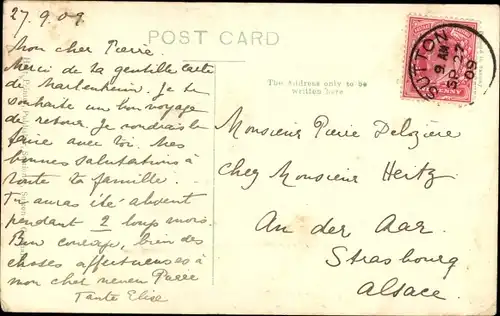 27.9.09
POST CARD
Mon cher Pierre.
Merci de la gentille carte
de Marlenheim. Je te
souhaite un bon voyage
de retour. Je voudrais le
faire avec toi. Mes
bonnes salutations à
toute ta famille.
Tu auras été absent
pendant 2 longs mois.
Bon courage, bien des
choses affectueuses à
mon cher neveu Pierre
Tante Elise
The Address only to be
written here
SUTTON
9 AM
SP 27
09
PENNY
Monsieur Pierre Delozière
chez Monsieur Hertz
An der Aar.
Strasbourg
Alsace.